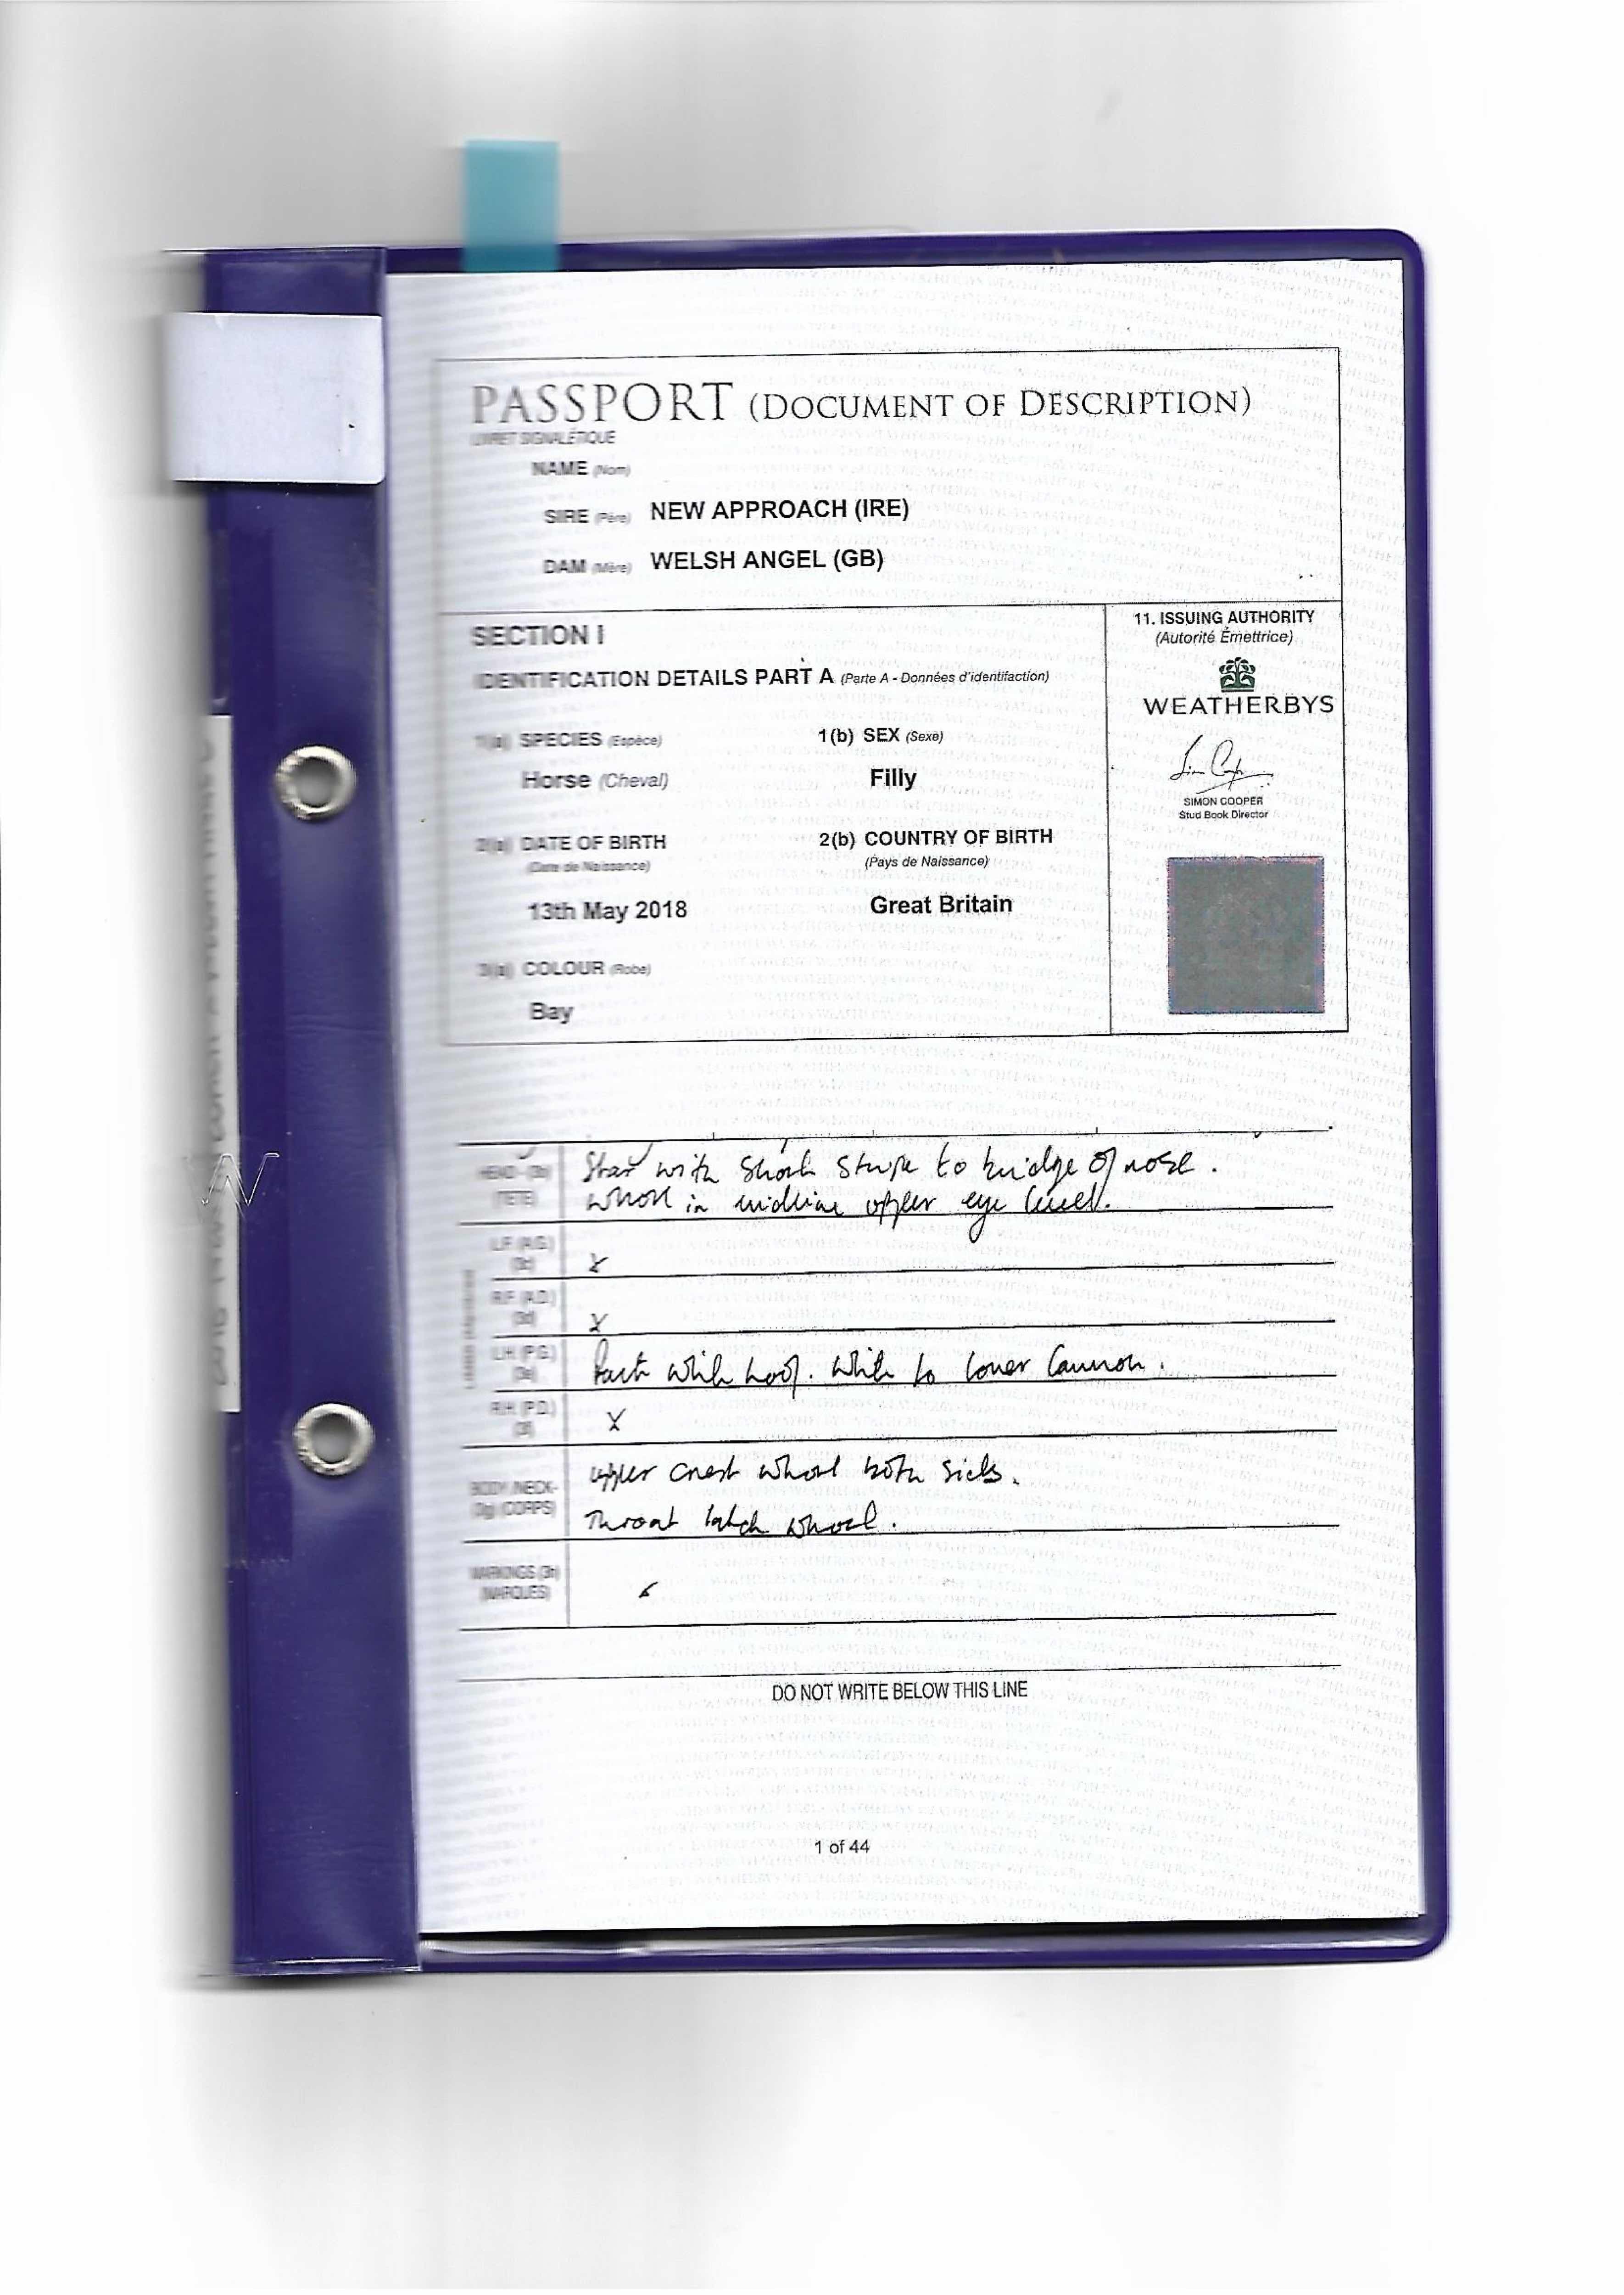 PASSPORT (DOCUMENT OF DESCRIPTION)
LIVRET SIGNALÉTIQUE
NAME (Nom)
SIRE (Père) NEW APPROACH (IRE)
DAM (Mère) WELSH ANGEL (GB)
SECTION I
IDENTIFICATION DETAILS PART A (Parte A - Données d'identifaction)
1(a) SPECIES (Espèce) 1(b) SEX (Sexe)
Horse (Cheval) Filly
2(a) DATE OF BIRTH 2(b) COUNTRY OF BIRTH
(Date de Naissance) (Pays de Naissance)
13th May 2018 Great Britain
3(a) COLOUR (Robe)
Bay
11. ISSUING AUTHORITY
(Autorité Émettrice)
WEATHERBYS
SIMON COOPER
Stud Book Director
HEAD - (3b) Star with short stripe to bridge of nose.
(TETE) whorl in midline upper eye level.
LF (AG)
(3c) X
RF (AD)
(3d) X
LH (PG) Part white hoof. White to lower cannon.
(3e)
RH (PD) X
(3f)
BODY/NECK- upper crest whorl both sides.
3g (CORPS) Throat latch whorl.
MARKINGS (3h)
(MARQUES)
DO NOT WRITE BELOW THIS LINE
1 of 44